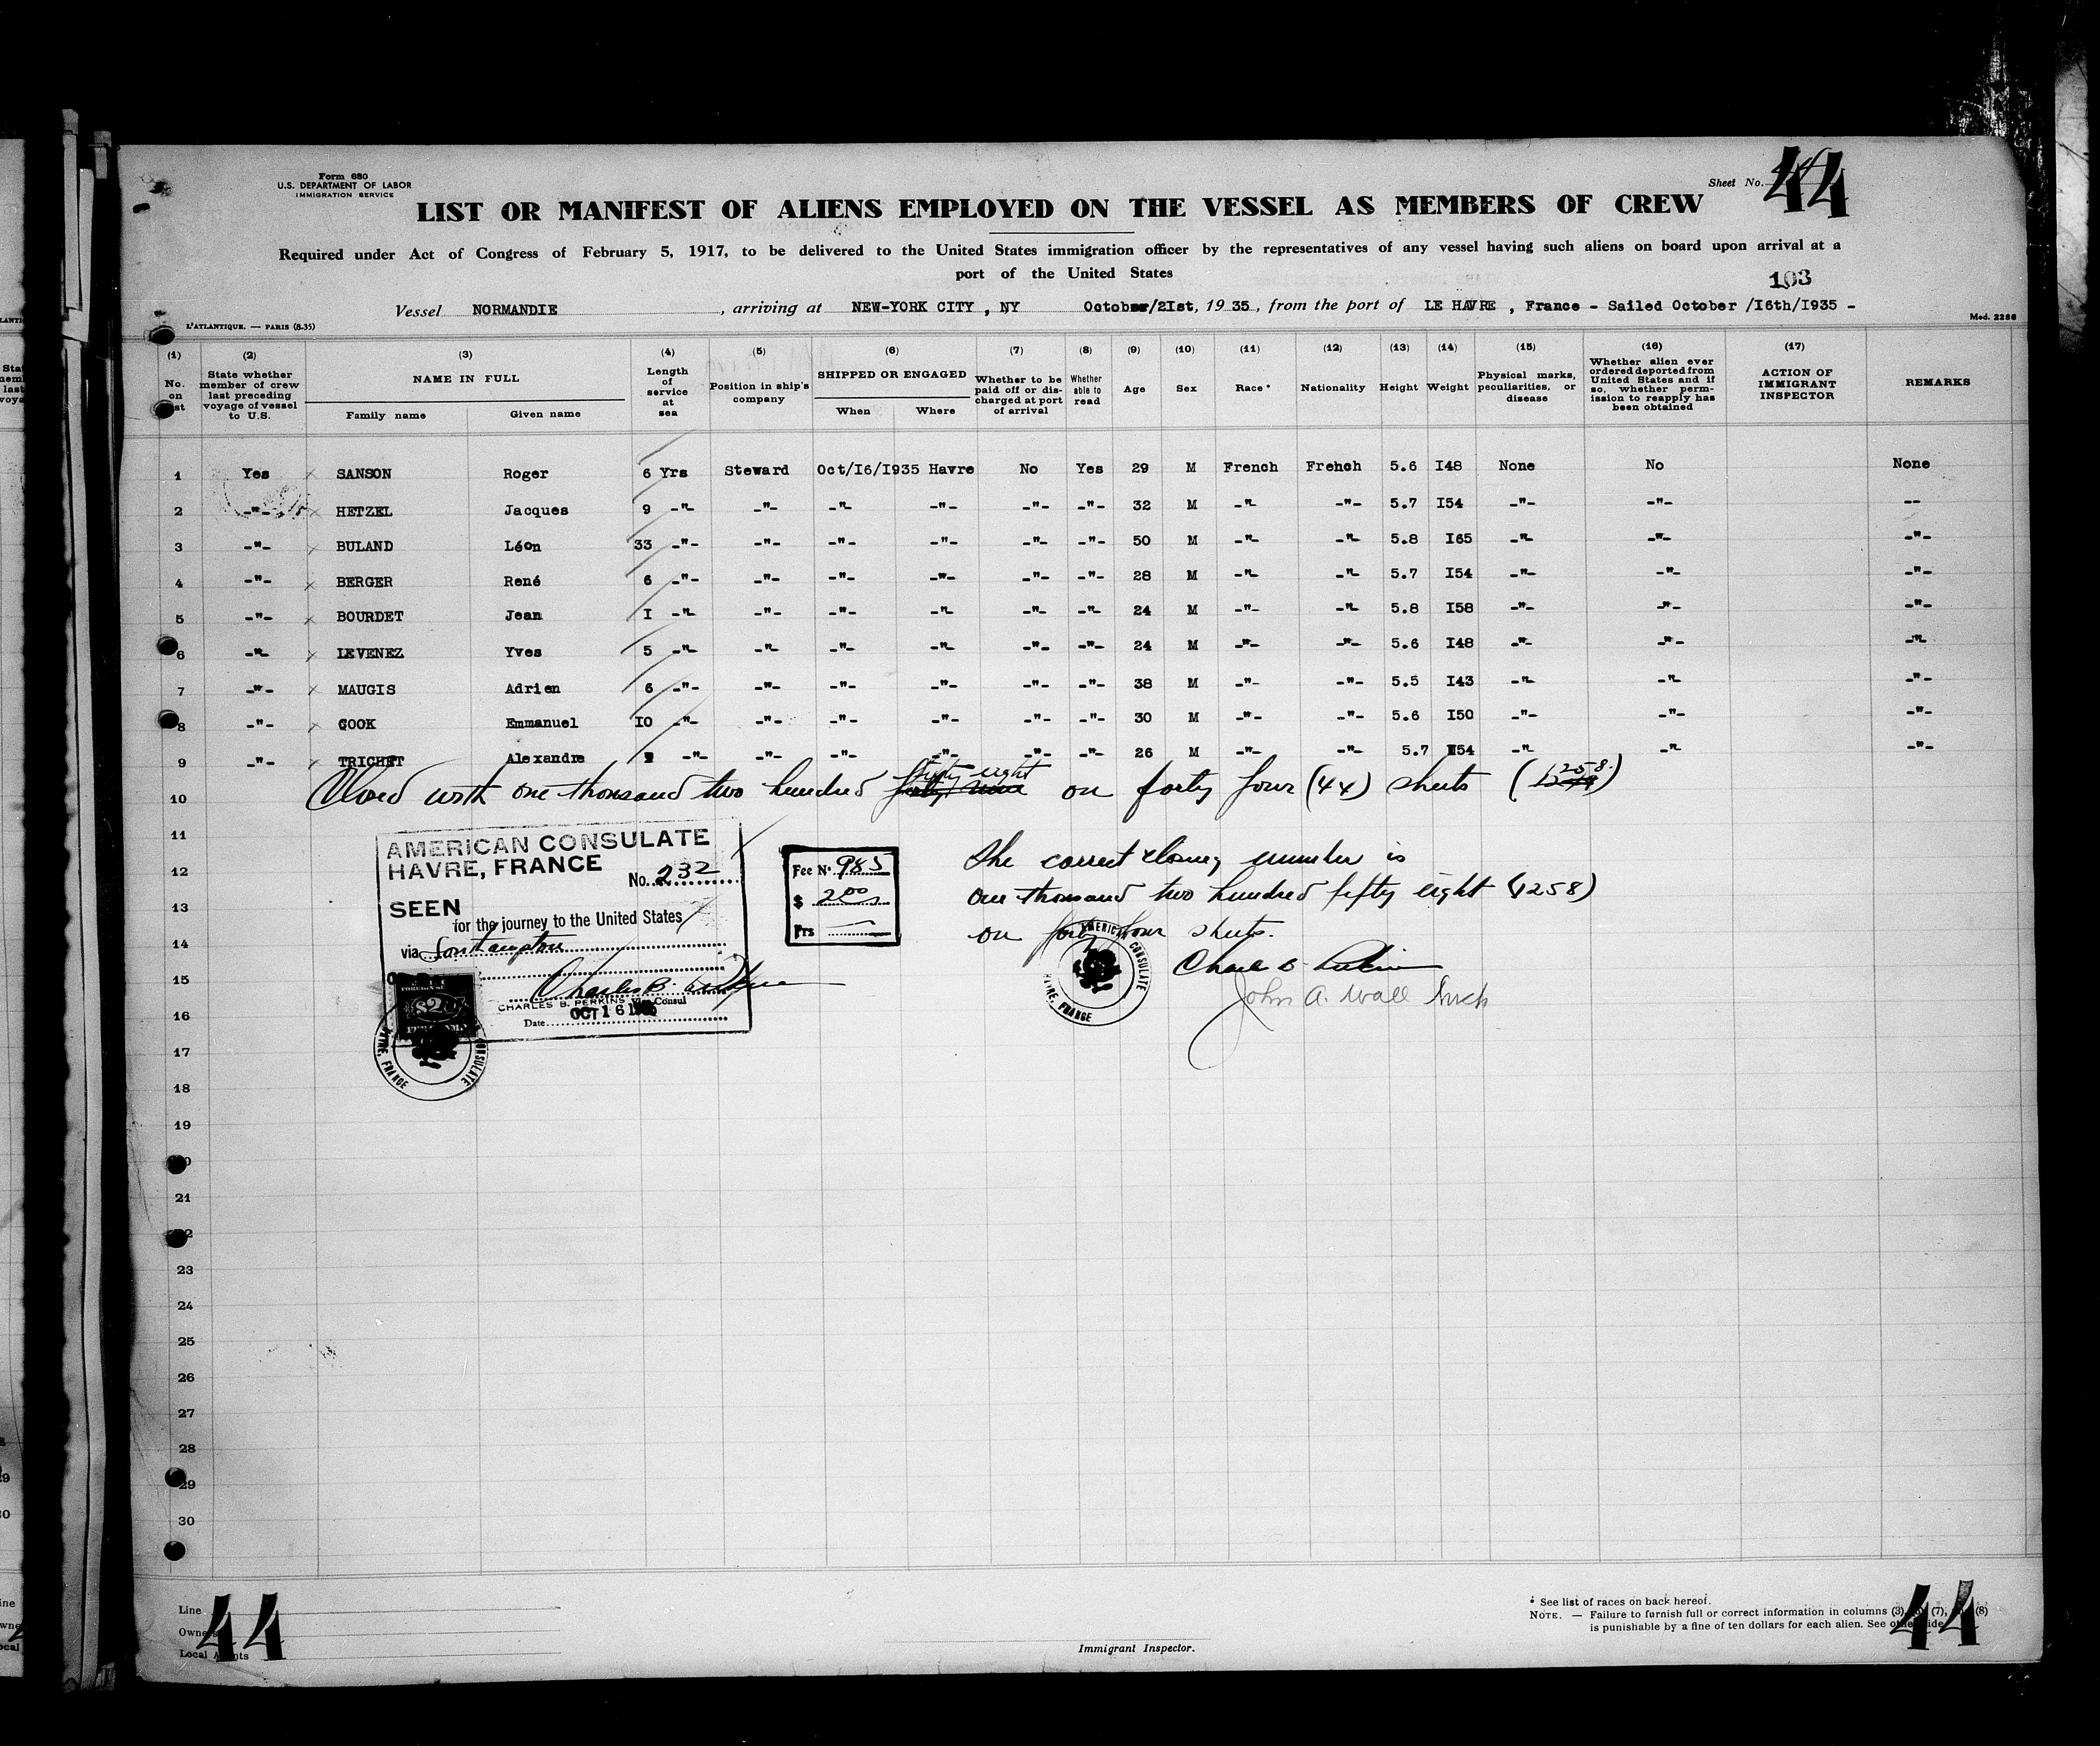 Form 680
U.S. DEPARTMENT OF LABOR
IMMIGRATION SERVICE
Sheet No. 44
LIST OR MANIFEST OF ALIENS EMPLOYED ON THE VESSEL AS MEMBERS OF CREW
Required under Act of Congress of February 5, 1917, to be delivered to the United States immigration officer by the representatives of any vessel having such aliens on board upon arrival at a
port of the United States
103
Vessel NORMANDIE , arriving at NEW-YORK CITY , NY October/2Ist, 19 35 , from the port of LE HAVRE , France - Sailed October /I6th/I935 -
L'ATLANTIQUE. — PARIS (8-35)
Mod. 2286
(1) (2) (3) (4) (5) (6) (7) (8) (9) (10) (11) (12) (13) (14) (15) (16) (17)
No. on
State whether member of crew last preceding voyage of vessel to U.S.
NAME IN FULL
Family name Given name
Length of service at sea
Position in ship's company
SHIPPED OR ENGAGED
When Where
Whether to be paid off or discharged at port of arrival
Whether able to read
Age Sex Race* Nationality Height Weight
Physical marks, peculiarities, or disease
Whether alien ever ordered deported from United States and if so, whether permission to reapply has been obtained
ACTION OF IMMIGRANT INSPECTOR
REMARKS
1 Yes SANSON Roger 6 Yrs Steward Oct/I6/I935 Havre No Yes 29 M French French 5.6 I48 None No None
2 -"- HETZEL Jacques 9 -"- -"- -"- -"- -"- -"- 32 M -"- -"- 5.7 I54 -"- -"- --
3 -"- BULAND Léon 33 -"- -"- -"- -"- -"- -"- 50 M -"- -"- 5.8 I65 -"- -"- -"-
4 -"- BERGER René 6 -"- -"- -"- -"- -"- -"- 28 M -"- -"- 5.7 I54 -"- -"- -"-
5 -"- BOURDET Jean I -"- -"- -"- -"- -"- -"- 24 M -"- -"- 5.8 I58 -"- -"- -"-
6 -"- LEVENEZ Yves 5 -"- -"- -"- -"- -"- -"- 24 M -"- -"- 5.6 I48 -"- -"- -"-
7 -"- MAUGIS Adrien 6 -"- -"- -"- -"- -"- -"- 38 M -"- -"- 5.5 I43 -"- -"- -"-
8 -"- COOK Emmanuel IO -"- -"- -"- -"- -"- -"- 30 M -"- -"- 5.6 I50 -"- -"- -"-
9 -"- TRICHET Alexandre -"- -"- -"- -"- -"- -"- 26 M -"- -"- 5.7 I54 -"- -"- -"-
10 Closed with one thousand two hundred fifty eight on forty four (44) sheets (1258)
11
12
13
14
15
16
17
18
19
21
23
24
25
26
27
28
29
30
AMERICAN CONSULATE
HAVRE, FRANCE
No. 232
SEEN
for the journey to the United States
via Southampton
CHARLES B. PERKINS Vice Consul
Date OCT 16 1935
Fee No. 985
$ 2.00
Frs
AMERICAN CONSULATE
HAVRE, FRANCE
The correct closing number is
one thousand two hundred fifty eight (1258)
on forty four sheets.
Charles B. Perkins
John A. Wall
AMERICAN CONSULATE
HAVRE, FRANCE
Line
Owners
Local Agents
44
Immigrant Inspector.
* See list of races on back hereof.
NOTE. — Failure to furnish full or correct information in columns (3), (7), (8)
is punishable by a fine of ten dollars for each alien. See other side
44